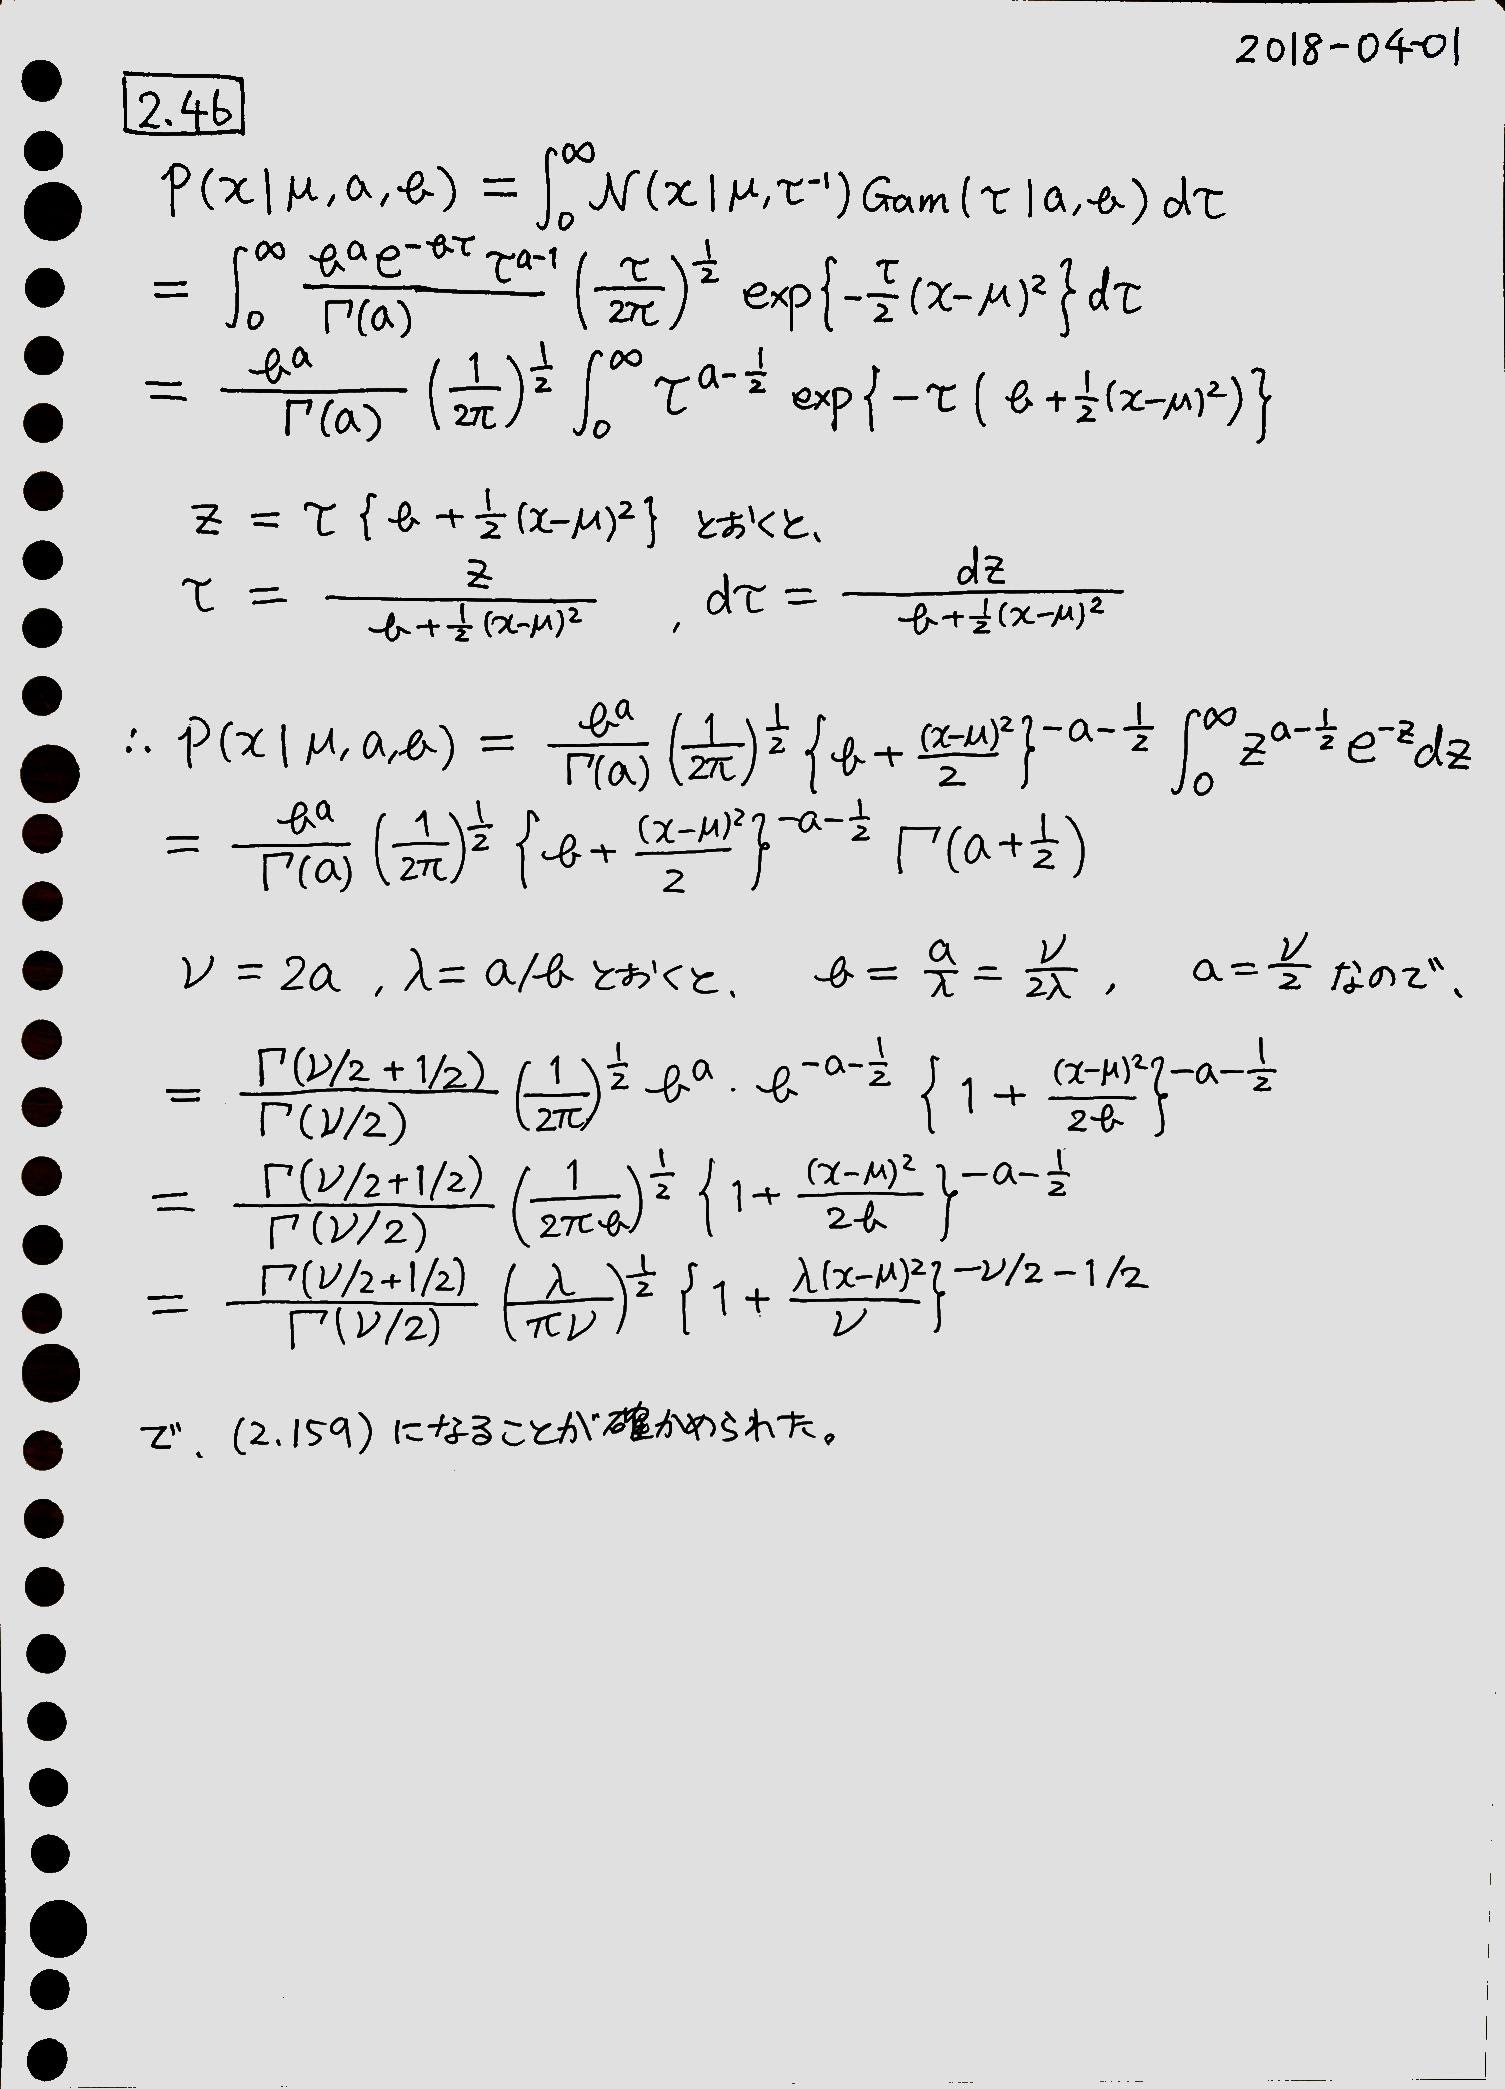 2018-04-01
2.46
P(x|μ,a,b) = ∫₀^∞ N(x|μ,τ⁻¹) Gam(τ|a,b) dτ
= ∫₀^∞ \frac{b^a e^{-bτ} τ^{a-1}}{Γ(a)} (\frac{τ}{2π})^{\frac{1}{2}} exp{-\frac{τ}{2}(x-μ)²} dτ
= \frac{b^a}{Γ(a)} (\frac{1}{2π})^{\frac{1}{2}} ∫₀^∞ τ^{a-\frac{1}{2}} exp{-τ(b+\frac{1}{2}(x-μ)²)}
z = τ{b+\frac{1}{2}(x-μ)²} とおくと、
τ = \frac{z}{b+\frac{1}{2}(x-μ)²} , dτ = \frac{dz}{b+\frac{1}{2}(x-μ)²}
∴ P(x|μ,a,b) = \frac{b^a}{Γ(a)} (\frac{1}{2π})^{\frac{1}{2}} {b+\frac{(x-μ)²}{2}}^{-a-\frac{1}{2}} ∫₀^∞ z^{a-\frac{1}{2}} e^{-z} dz
= \frac{b^a}{Γ(a)} (\frac{1}{2π})^{\frac{1}{2}} {b+\frac{(x-μ)²}{2}}^{-a-\frac{1}{2}} Γ(a+\frac{1}{2})
ν = 2a , λ = a/b とおくと、 b = \frac{a}{λ} = \frac{ν}{2λ} , a = \frac{ν}{2} なので、
= \frac{Γ(ν/2+1/2)}{Γ(ν/2)} (\frac{1}{2π})^{\frac{1}{2}} b^a · b^{-a-\frac{1}{2}} {1+\frac{(x-μ)²}{2b}}^{-a-\frac{1}{2}}
= \frac{Γ(ν/2+1/2)}{Γ(ν/2)} (\frac{1}{2πb})^{\frac{1}{2}} {1+\frac{(x-μ)²}{2b}}^{-a-\frac{1}{2}}
= \frac{Γ(ν/2+1/2)}{Γ(ν/2)} (\frac{λ}{πν})^{\frac{1}{2}} {1+\frac{λ(x-μ)²}{ν}}^{-ν/2-1/2}
で、(2.159)になることが確かめられた。